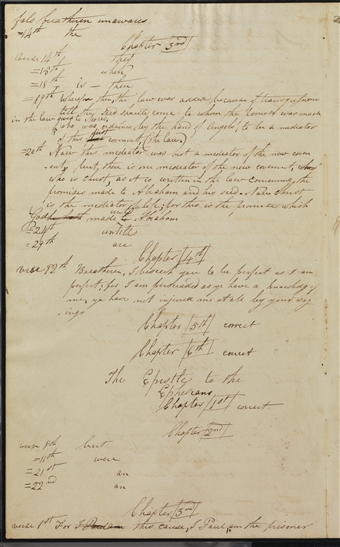 false breatheren unawares
=14th the
Chapter 3rd
verse 14th they
=15th when
=18th is — then
=19th Wherefore then the law was added because of transgressions
till the seed should come to whom the promise was made
in the law given to Moses
& who was ordained by the hand of Angels, to be a mediator
of this first covenant (the law)
=20th Now this mediator was not a mediator of the new coven
ant, but, there is one mediator of the new covenant, who
who is Christ, as it is written in the law concerning the
promises made to Abraham and his seed. Now Christ
is the mediator of life; for this is the promise which
God made unto Abraham
=24th untill
=29th are
Chapter 4th
verse 12th Breatheren, I beseech you to be perfect as I am
perfect; for I am persuaded as ye have a knowledge of
me, ye have not injured me at all by your say
ings
Chapter 5th correct
Chapter 6th correct
The Epistle to the
Ephesians
Chapter 1st correct
Chapter 2nd
verse 8th but
=11th were
=21st an
=22nd an
Chapter 3rd
verse 1st For this cause, I Paul, am the prisoner